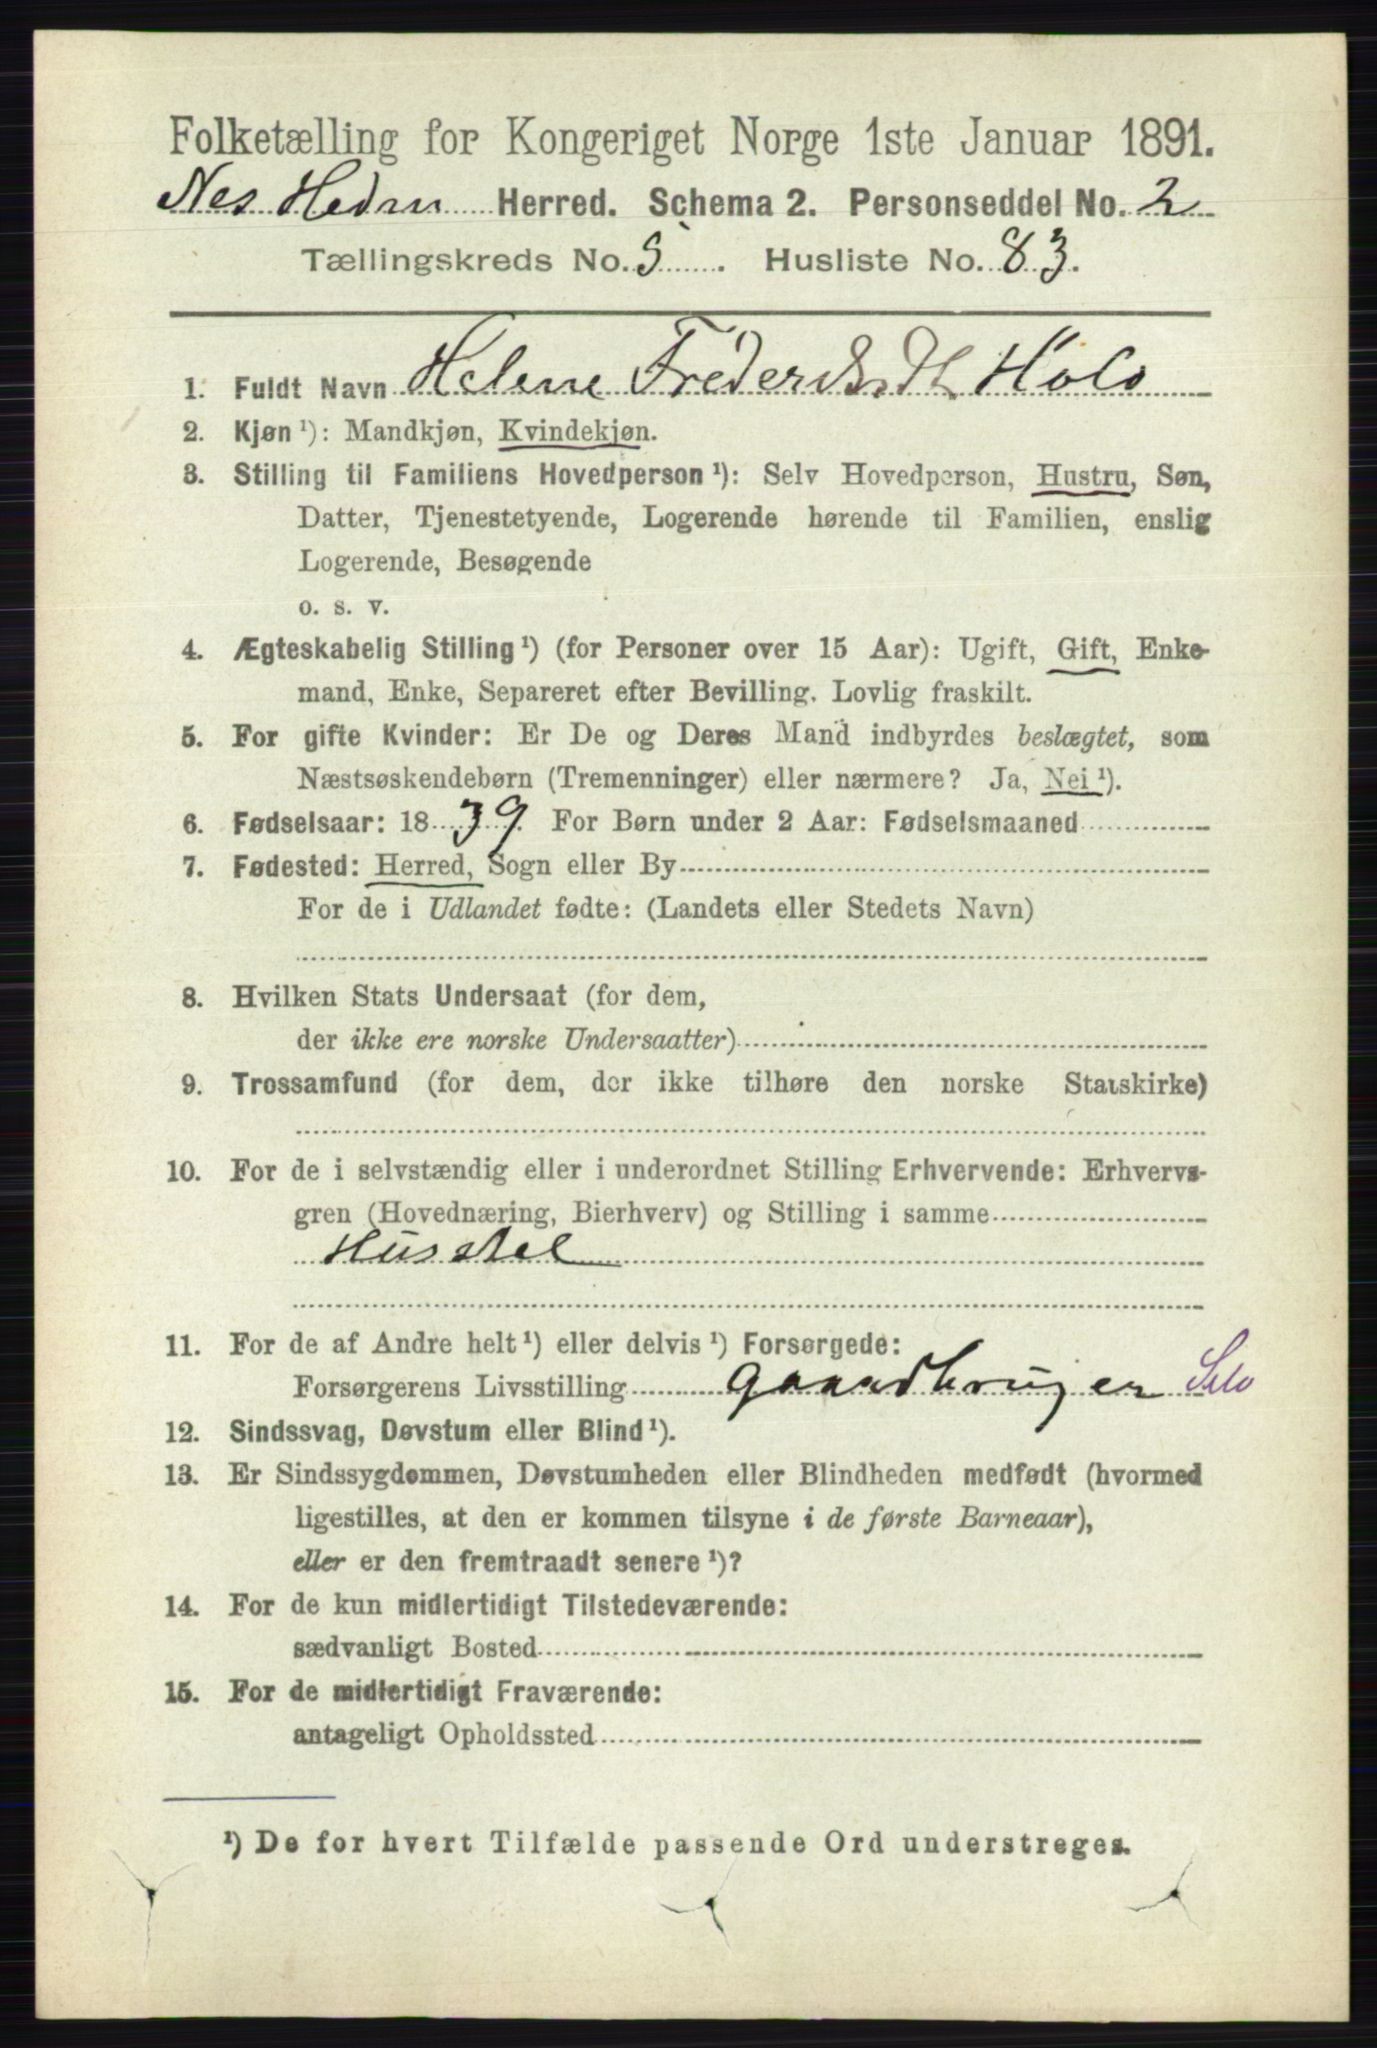 Folketælling for Kongeriget Norge 1ste Januar 1891.
Nes Hedm Herred. Schema 2. Personseddel No. 2
Tællingskreds No. 5. Husliste No. 83.
1. Fuldt Navn Helene Holo
2. Kjøn ¹): Mandkjøn, Kvindekjøn.
3. Stilling til Familiens Hovedperson ¹): Selv Hovedperson, Hustru, Søn,
Datter, Tjenestetyende, Logerende hørende til Familien, enslig
Logerende, Besøgende
o. s. v.
4. Ægteskabelig Stilling ¹) (for Personer over 15 Aar): Ugift, Gift, Enke-
mand, Enke, Separeret efter Bevilling. Lovlig fraskilt.
5. For gifte Kvinder: Er De og Deres Mand indbyrdes beslægtet, som
Næstsøskendebørn (Tremenninger) eller nærmere? Ja, Nei ¹).
6. Fødselsaar: 1839. For Børn under 2 Aar: Fødselsmaaned
7. Fødested: Herred, Sogn eller By
For de i Udlandet fødte: (Landets eller Stedets Navn)
8. Hvilken Stats Undersaat (for dem,
der ikke ere norske Undersaatter)
9. Trossamfund (for dem, der ikke tilhøre den norske Statskirke)
10. For de i selvstændig eller i underordnet Stilling Erhvervende: Erhvervs-
gren (Hovednæring, Bierhverv) og Stilling i samme
Husstel
11. For de af Andre helt ¹) eller delvis ¹) Forsørgede:
Forsørgerens Livsstilling Gaardbruger Selv
12. Sindssvag, Døvstum eller Blind ¹).
13. Er Sindssygdommen, Døvstumheden eller Blindheden medfødt (hvormed
ligestilles, at den er kommen tilsyne i de første Barneaar),
eller er den fremtraadt senere ¹)?
14. For de kun midlertidigt Tilstedeværende:
sædvanligt Bosted
15. For de midlertidigt Fraværende:
antageligt Opholdssted
¹) De for hvert Tilfælde passende Ord understreges.